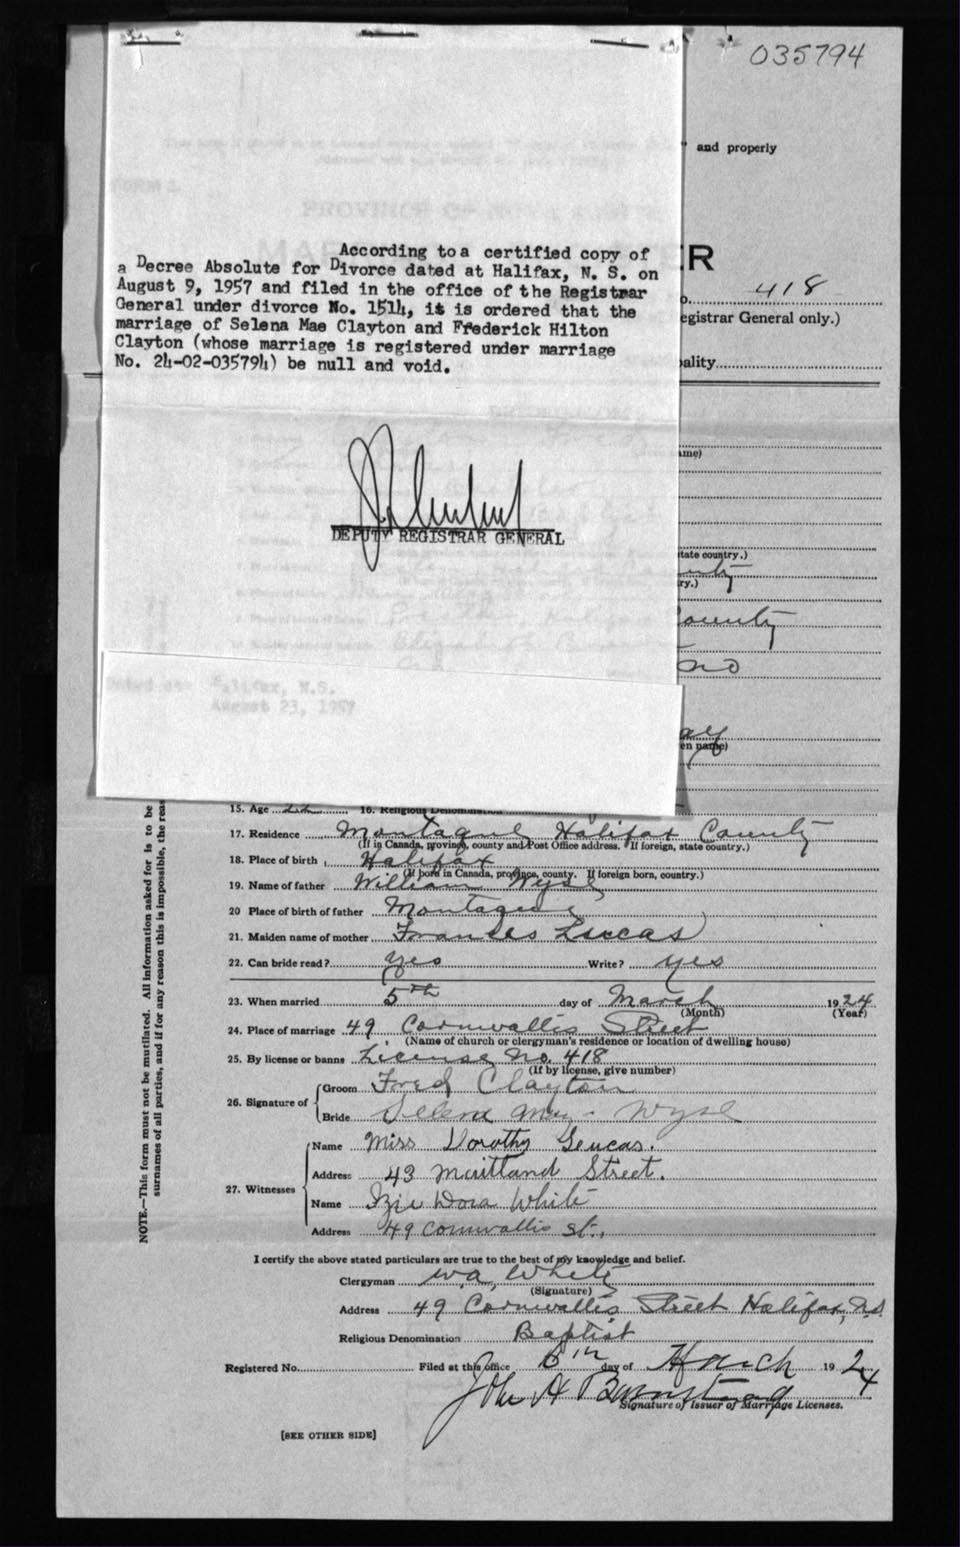 035794
" and properly
ER
o. 418
egistrar General only.)
pality
According to a certified copy of
a Decree Absolute for Divorce dated at Halifax, N. S. on
August 9, 1957 and filed in the office of the Registrar
General under divorce No. 1514, it is ordered that the
marriage of Selena Mae Clayton and Frederick Hilton
Clayton (whose marriage is registered under marriage
No. 24-02-035794) be null and void.
DEPUTY REGISTRAR GENERAL
ame)
tate country.)
unty
ry.)
County
no
Halifax, N.S.
August 23, 1957
ay
en name)
15. Age 16. Religious Denomination
17. Residence Montague Halifax County
(If in Canada, province, county and Post Office address. If foreign, state country.)
18. Place of birth Halifax
(If born in Canada, province, county. If foreign born, country.)
19. Name of father William Wyse
20 Place of birth of father Montague
21. Maiden name of mother Frances Luccas
22. Can bride read? yes Write? yes
23. When married 5th day of March 1924
(Month) (Year)
24. Place of marriage 49 Cornwallis Street
(Name of church or clergyman's residence or location of dwelling house)
25. By license or banns License No. 418
(If by license, give number)
26. Signature of Groom Fred Clayton
Bride Selena May - Wyse
27. Witnesses
Name Miss Dorothy Leucas.
Address 43 Maitland Street.
Name Izie Dora White
Address 49 Cornwallis St.,
I certify the above stated particulars are true to the best of my knowledge and belief.
Clergyman W.A. White
(Signature)
Address 49 Cornwallis Street Halifax, N.S.
Religious Denomination Baptist
Registered No. Filed at this office 6th day of March 1924
John A Barnstead
Signature of Issuer of Marriage Licenses.
[SEE OTHER SIDE]
NOTE.—This form must not be mutilated. All information asked for is to be
surnames of all parties, and if for any reason this is impossible, the reas